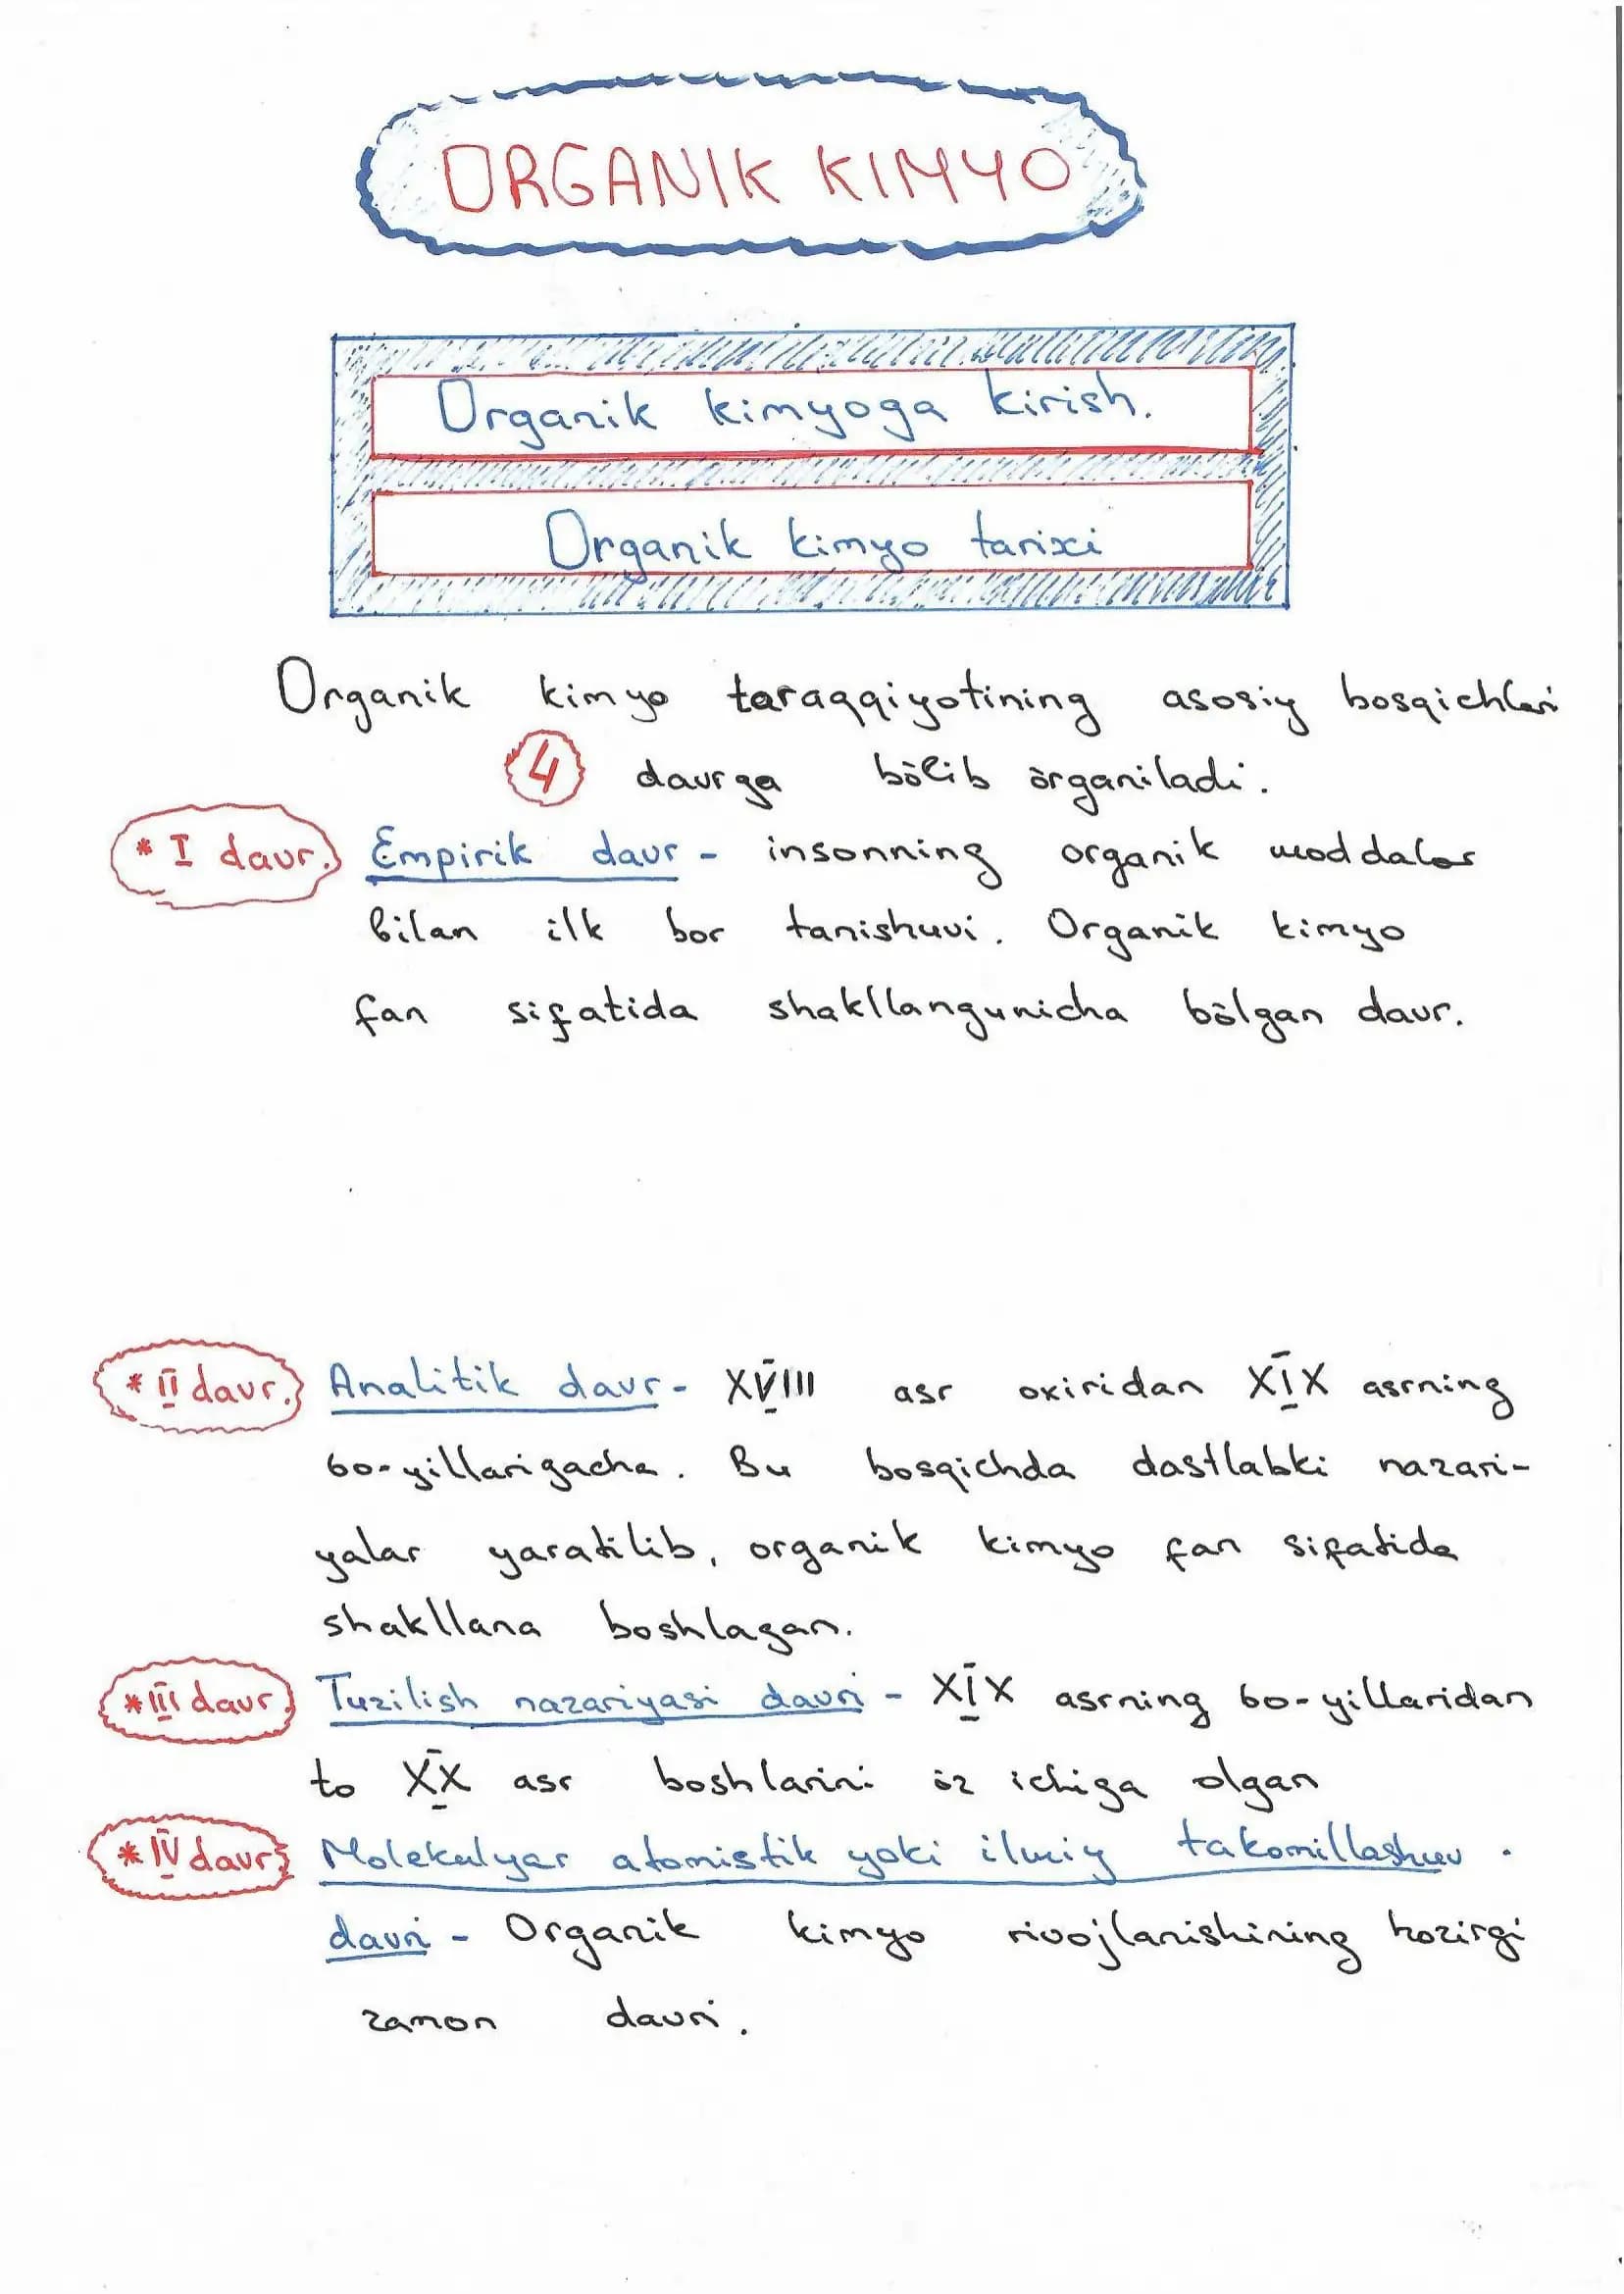 ORGANIK KIMYO
Organik kimyoga kirish.
Organik kimyo tarixi
Organik kimyo taraqqiyotining asosiy bosqichlari
4 davrga bōlib ōrganiladi.
* I davr. Empirik davr - insonning organik moddalar
bilan ilk bor tanishuvi. Organik kimyo
fan sifatida shakllangunicha bōlgan davr.
* II davr. Analitik davr - XVIII asr oxiridan XIX asrning
60-yillarigacha. Bu bosqichda dastlabki nazari-
yalar yaratilib, organik kimyo fan sifatida
shakllana boshlagan.
* III davr. Tuzilish nazariyasi davri - XIX asrning 60-yillaridan
to XX asr boshlarini ōz ichiga olgan
* IV davr. Molekulyar atomistik yoki ilmiy takomillashuv
davri - Organik kimyo rivojlanishining hozirgi
zamon davri.